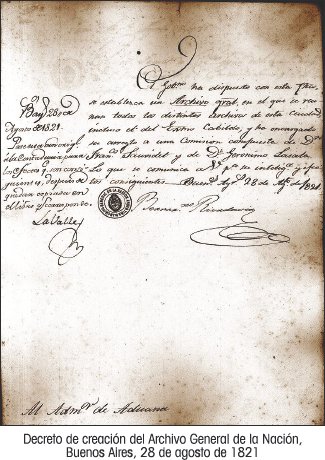 El Gobno. ha dispuesto con esta fha.
se establezca un Archivo gral, en el que se reu-
nan todos los distintos archivos de esta ciudad
incluso el del Extto Cabildo, y ha encargado
su arreglo a una Comision compuesta de Dn.
Fran.co Saunidel y de Dn. Geronimo Lasala
Lo que se comunica a V. pa. su intelig.a y
consiguientes. Buens. Ays. 28 de Agto. de 1821.
Bernar.no Rivadavia
Bs. Ays. 28 de
Agosto de 1821.
la Contaduria para
los efectos
quedar copiada en
el libro
LaValle
Al Admor. de Aduana
Decreto de creación del Archivo General de la Nación,
Buenos Aires, 28 de agosto de 1821